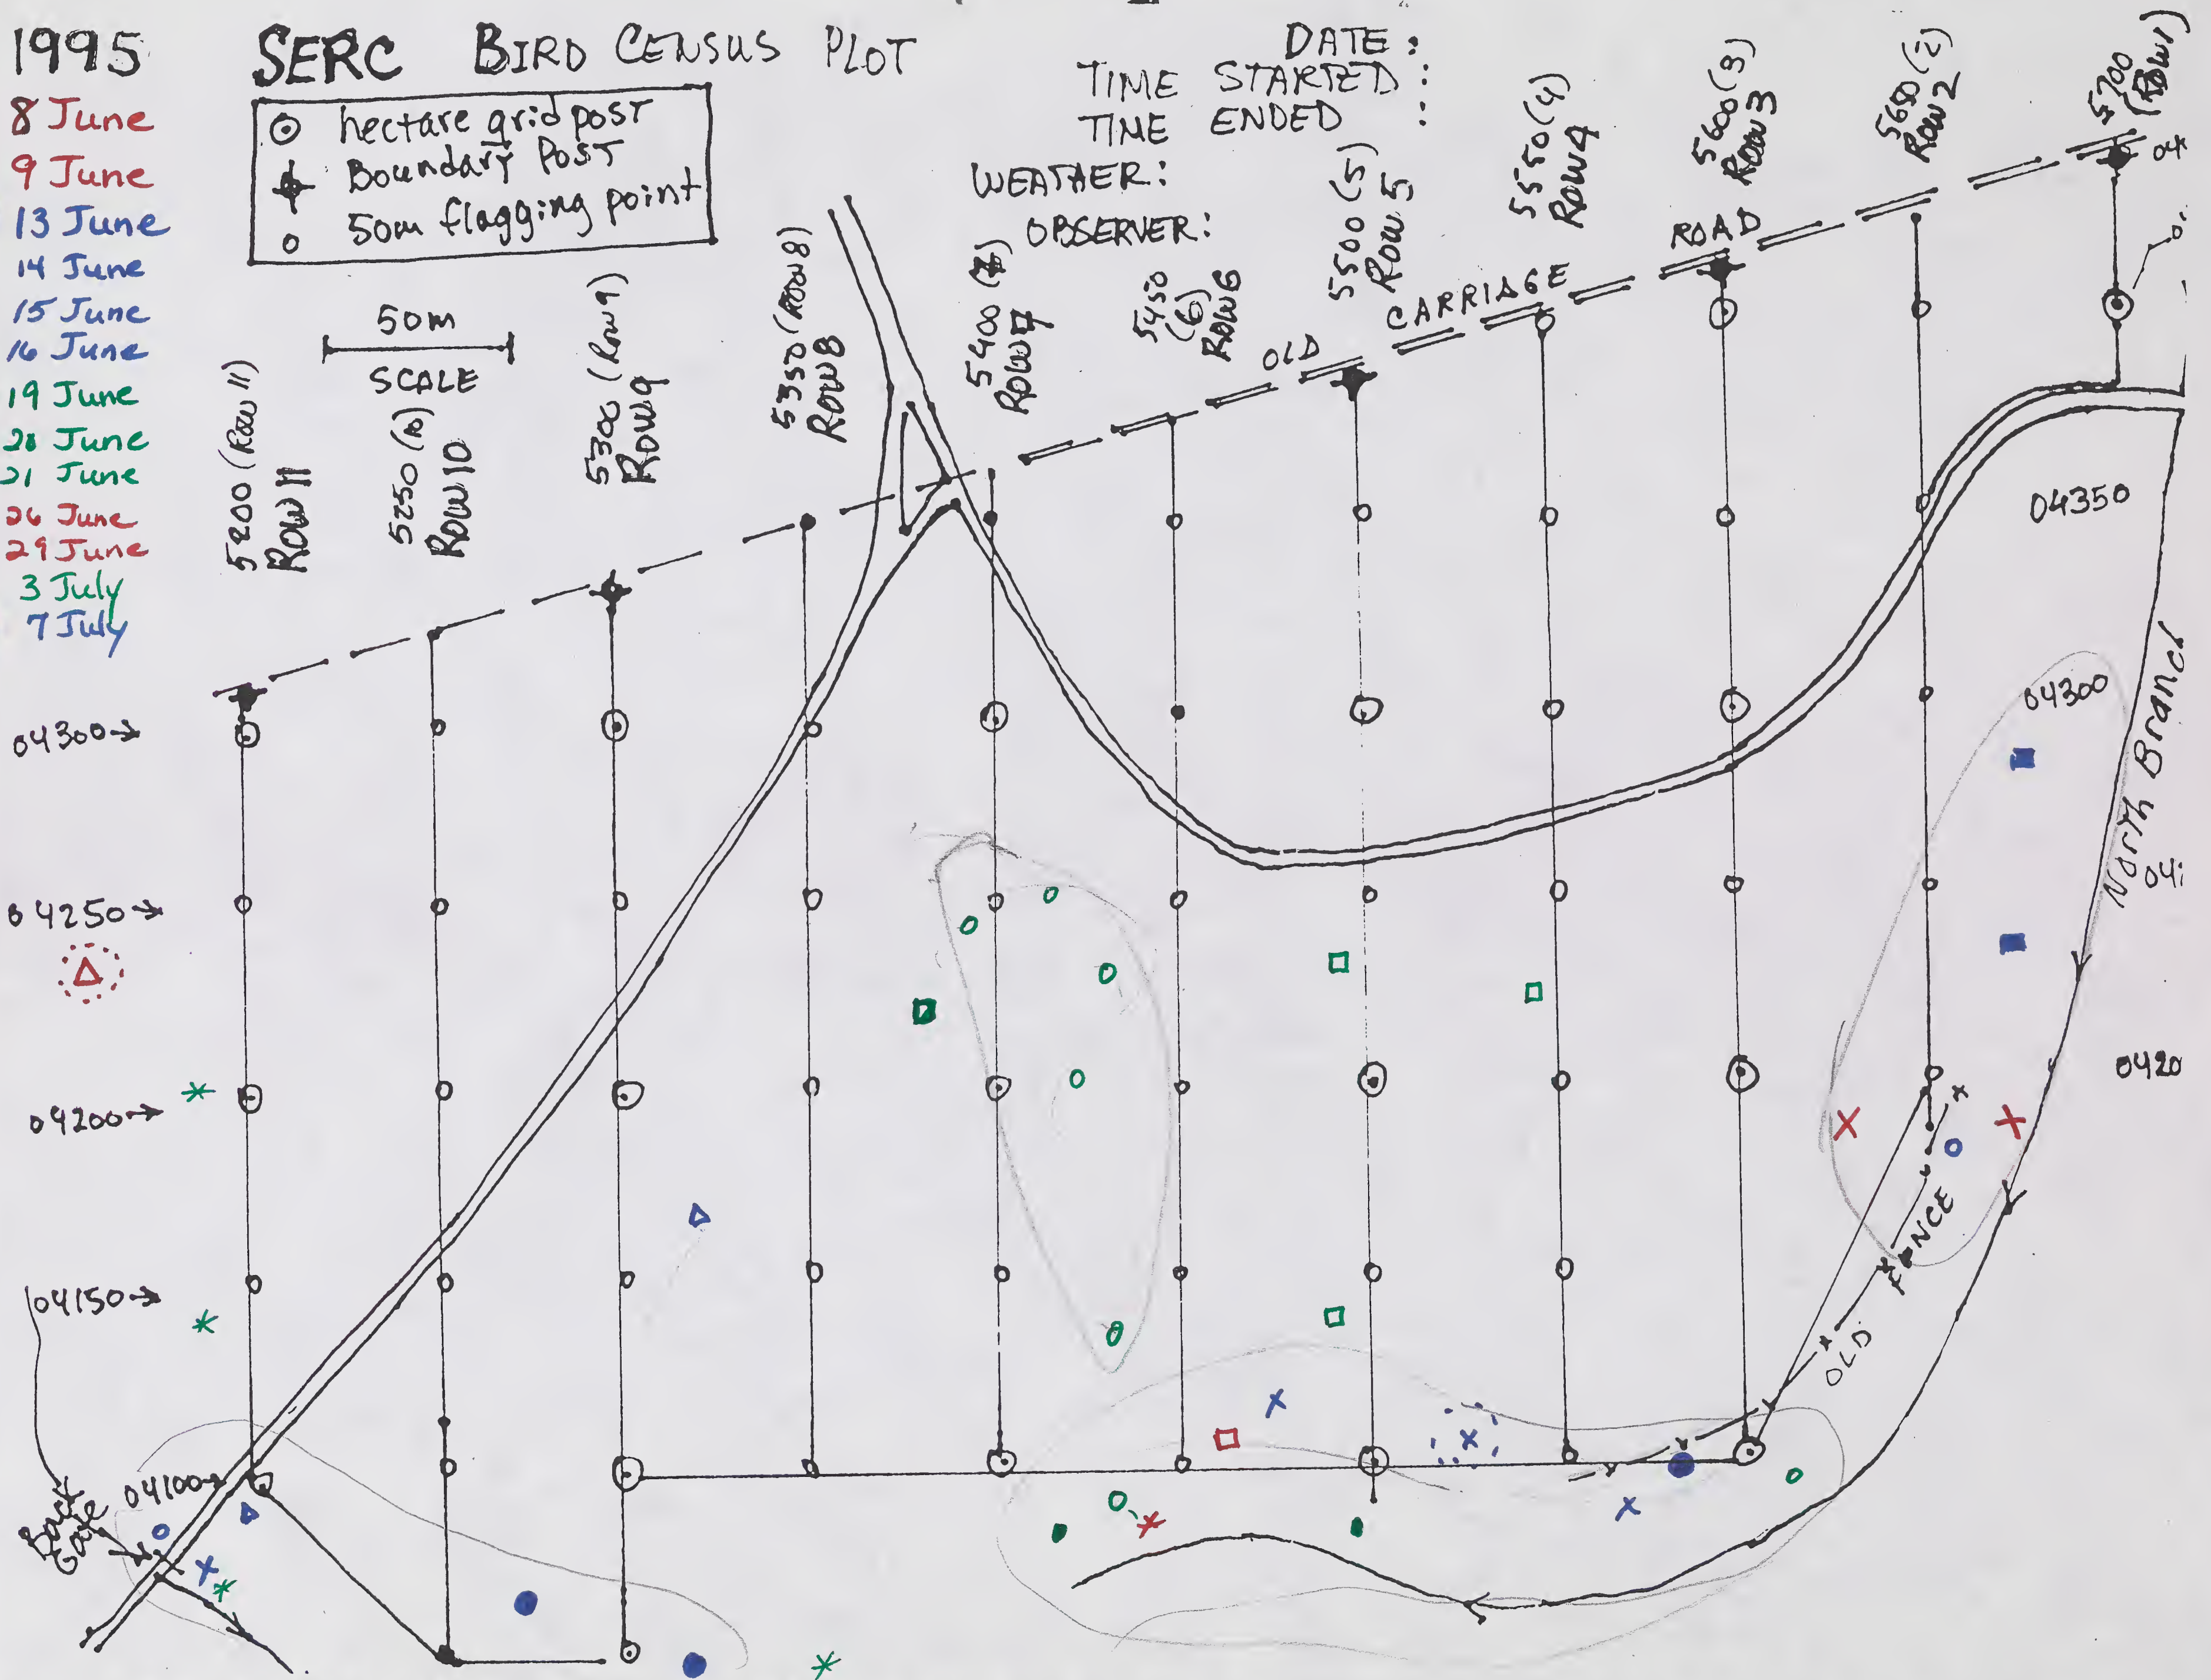 1995
SERC BIRD CENSUS PLOT
8 June
9 June
13 June
14 June
15 June
16 June
19 June
20 June
21 June
26 June
29 June
3 July
7 July
hectare grid post
Boundary Post
50m flagging point
50m
SCALE
DATE:
TIME STARTED:
TIME ENDED:
WEATHER:
OBSERVER:
5200 (Row 11)
Row 11
5250 (10)
Row 10
5300 (Row 9)
Row 9
5350 (Row 8)
Row 8
5400 (7)
Row 7
5450
(6)
Row 6
5500 (5)
Row 5
5550 (4)
Row 4
5600 (3)
Row 3
5650 (2)
Row 2
5700
(Row 1)
OLD CARRIAGE ROAD
04
04350
04300
North Branch
04
0420
04300→
04250→
04200→
04150→
04100→
Back
Gate
OLD FENCE